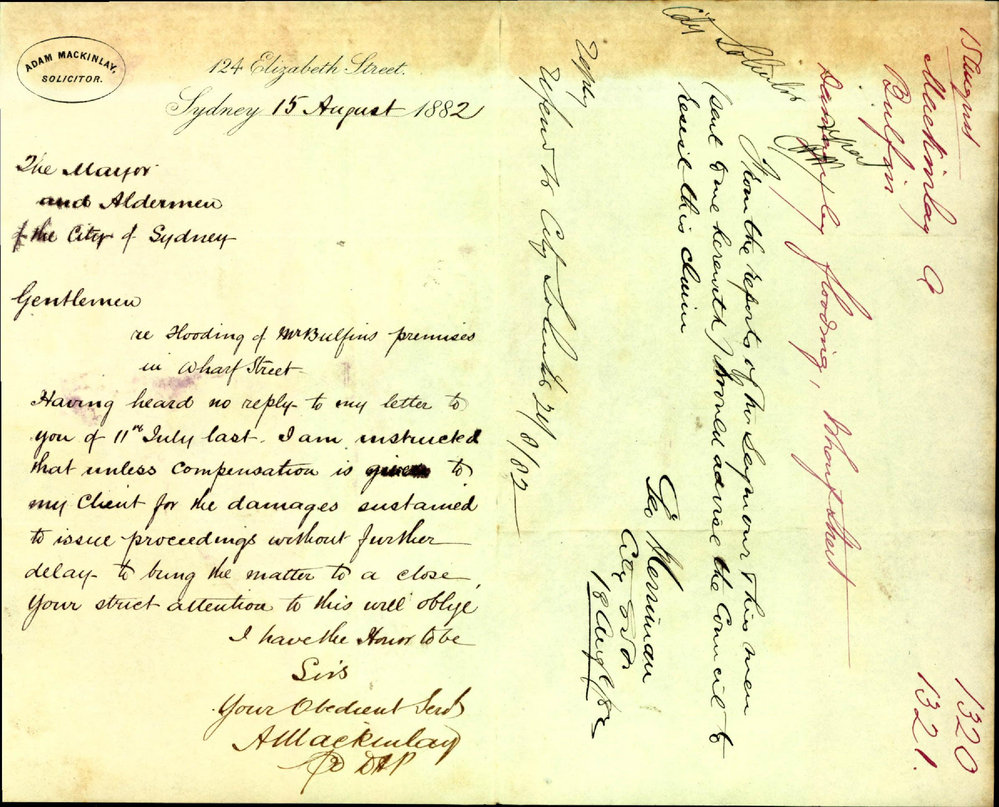 ADAM MACKINLAY,
SOLICITOR.
124 Elizabeth Street.
Sydney 15 August 1882
The Mayor
and Aldermen
of the City of Sydney
Gentlemen
re Flooding of Mr Bulfins premises
in Wharf Street
Having heard no reply to my letter to
you of 11th July last. I am instructed
that unless compensation is given to
my Client for the damages sustained
to issue proceedings without further
delay to bring the matter to a close,
Your strict attention to this will oblige
I have the Honor to be
Sirs
Your Obedient Servt
AMackinlay
15 August
Mackinlay A
Bulfin
Damage by flooding, Wharf Street
1320
1321.
City Solicitor
From the reports of Mr Seymour & his men
(sent to me herewith) I would advise the Council to
resist this claim
Geo Merriman
City
18 Aug /82
Reply
Refer to City Solicitor 24/8/82